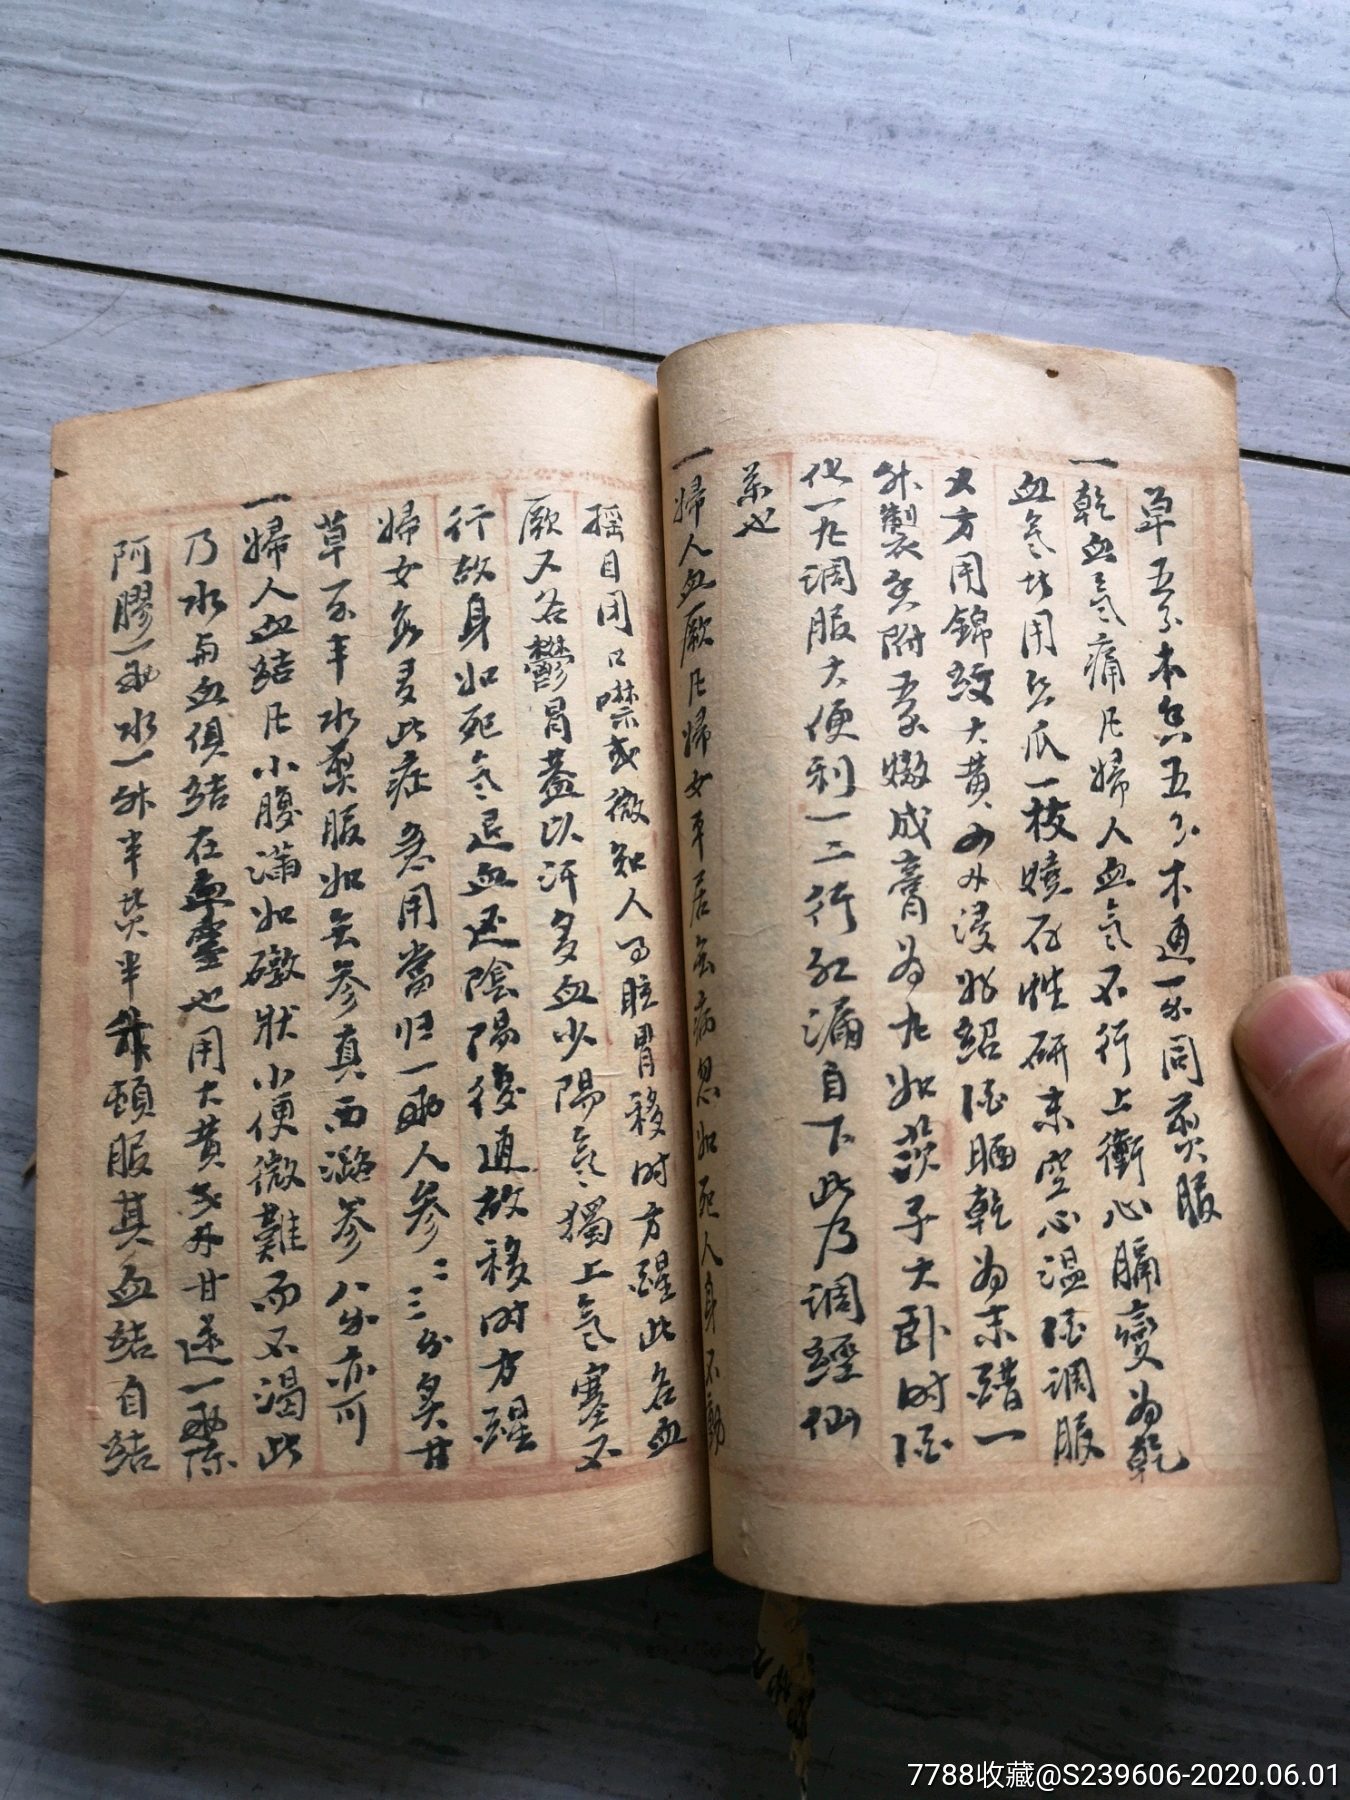 草五分木香五分木通一分同煎服
一乾血氣痛凡婦人血氣不行上衝心膈變為乾
血氣坊用絲瓜一枝燒存性研末空心溫酒調服
又方用錦紋大黃四外浸紹酒晒乾為末醋一
外製香附五分嫩成膏為丸如茨子大卧时酒
化一丸調服大便利一二行紅漏自下此乃調經仙
藥也
一婦人血厥凡婦女平居無病忽如死人身不動
搖目闭口噤或微知人眩冒移时方醒此名血
厥又名鬱冒蓋以汗多血少陽氣獨上氣塞不
行故身如死氣過血還陰陽復通故移时方醒
婦女多此症急用當归一兩人参二三分炙甘
草不半水煎服如無参真西潞参八分亦可
一婦人血結凡小腹滿如礅狀小便微難而不渴此
乃水与血俱結在血室也用大黃外甘遂一兩
阿膠一兩水一外半煎半頓服其血結自結
7788收藏@S239606-2020.06.01